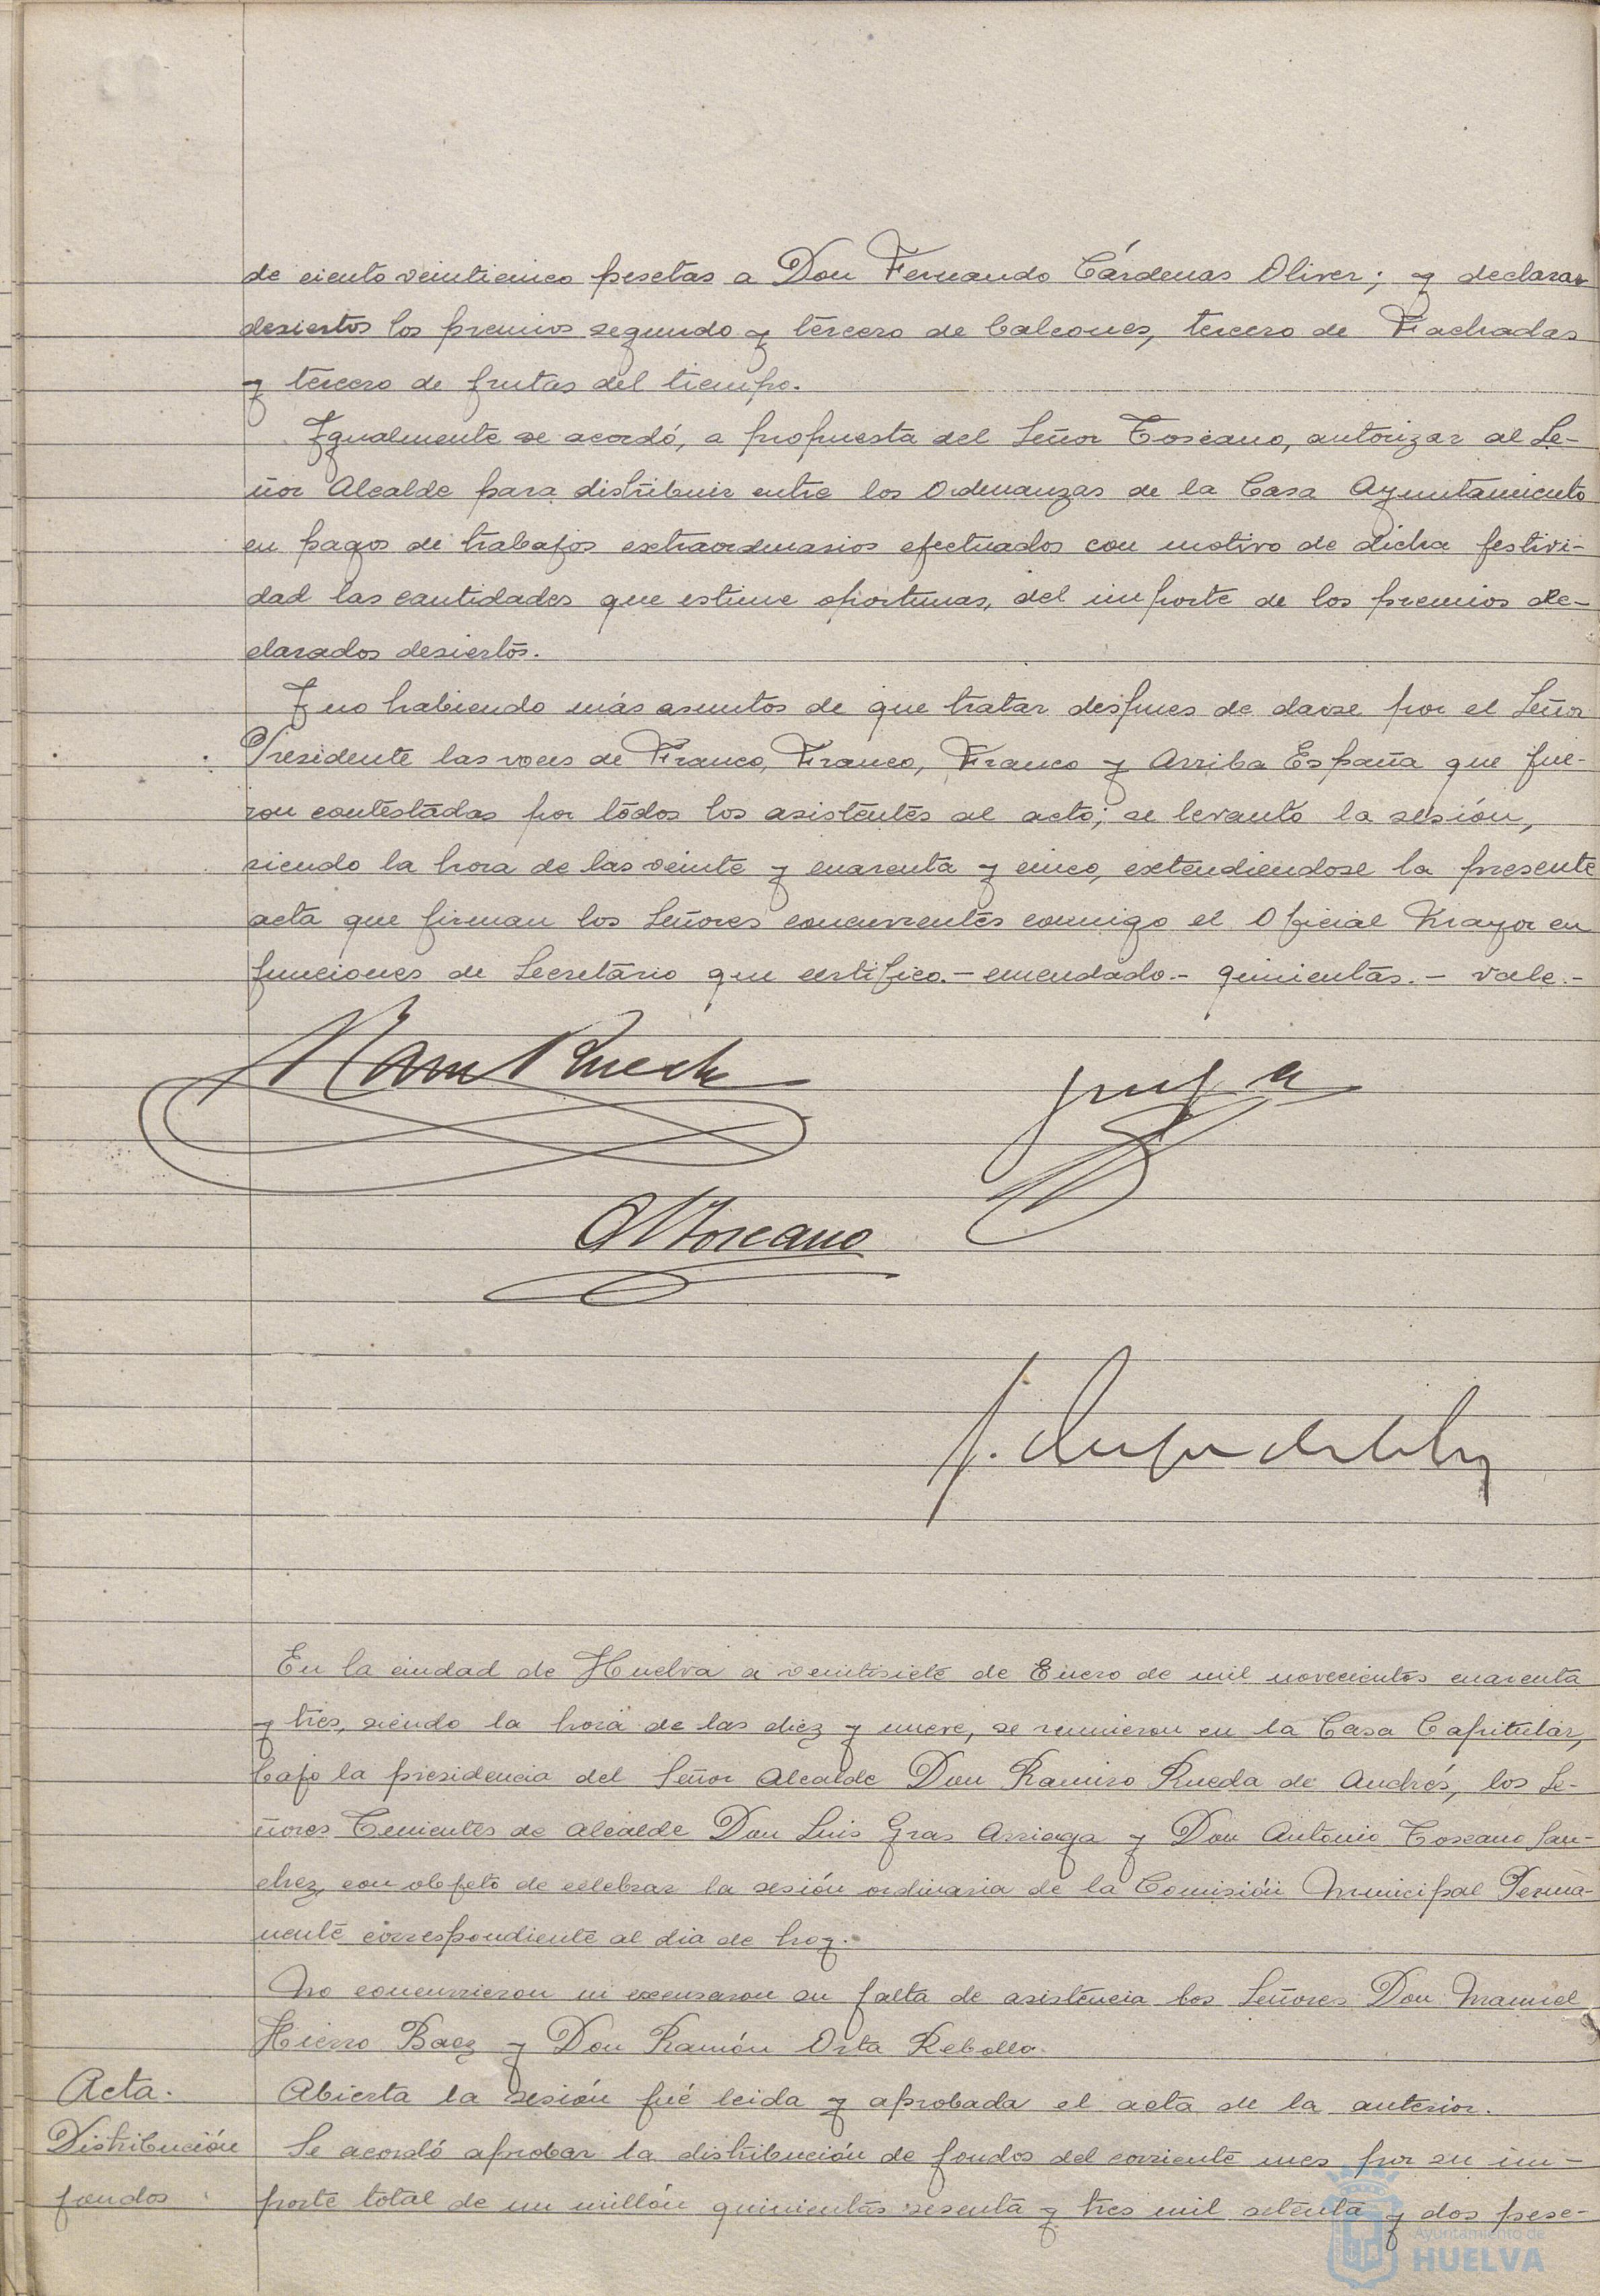 de ciento veinticinco pesetas a Don Fernando Cárdenas Oliver; y declarar
desiertos los premios segundo y tercero de balcones, tercero de Fachadas
y tercero de frutas del tiempo.
Igualmente se acordó, a propuesta del Señor Toscano, autorizar al Se-
ñor Alcalde para distribuir entre los Ordenanzas de la Casa Ayuntamiento
en pagos de trabajos extraordinarios efectuados con motivo de dicha festivi-
dad las cantidades que estime oportunas, del importe de los premios de-
clarados desiertos.
Y no habiendo más asuntos de que tratar despues de darse por el Señor
Presidente las voces de Franco, Franco, Franco y Arriba España que fue-
ron contestadas por todos los asistentes al acto; se levantó la sesión,
siendo la hora de las veinte y cuarenta y cinco, extendiendose la presente
acta que firman los Señores concurrentes conmigo el Oficial Mayor en
funciones de Secretario que certifico.- emendado.- quinientas.- vale.-
Toscano
En la ciudad de Huelva a veintisiete de Enero de mil novecientos cuarenta
y tres, siendo la hora de las diez y nueve, se reunieron en la Casa Capitular,
bajo la presidencia del Señor Alcalde Don Ramiro Rueda de Andrés, los Se-
ñores Tenientes de Alcalde Don Luis Gras Arriaga y Don Antonio Toscano San-
chez, con objeto de celebrar la sesión ordinaria de la Comisión Municipal Perma-
nente correspondiente al dia de hoy.
No concurrieron ni excusaron su falta de asistencia los Señores Don Manuel
Hierro Baez y Don Ramón Orta Rebollo.
Acta. Abierta la sesión fué leida y aprobada el acta de la anterior.
Distribución Se acordó aprobar la distribución de fondos del corriente mes por su im-
fondos porte total de un millón quinientas sesenta y tres mil setenta y dos pese-
Ayuntamiento de
HUELVA